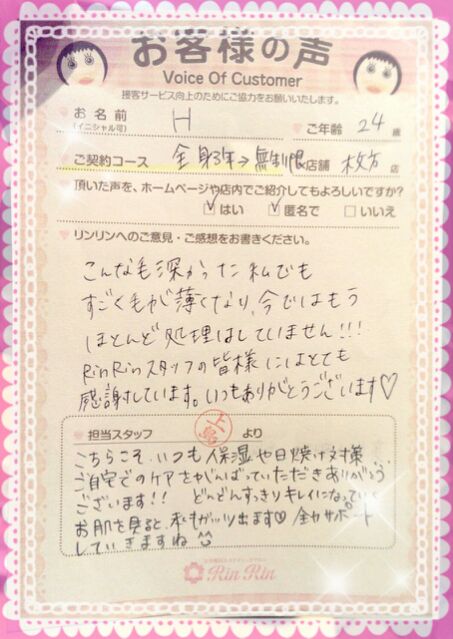 お客様の声
Voice Of Customer
接客サービス向上のためにご協力をお願いいたします。
お名前 H ご年齢 24 歳
(イニシャル可)
ご契約コース 全身3年→無制限 店舗 枚方 店
頂いた声を、ホームページや店内でご紹介してもよろしいですか?
はい 匿名で いいえ
リンリンへのご意見・ご感想をお書きください。
こんな毛深かった私でも
すごく毛が薄くなり、今ではもう
ほとんど処理はしていません!!!
RinRinスタッフの皆様にはとても
感謝しています。いつもありがとうございます♡
担当スタッフ より
こちらこそ、いつも保湿や日焼け対策
ご自宅でのケアをがんばっていただきありがとう
ございます!! どんどんすっきりキレイになっていく
お肌を見ると、私もガッツ出ます♡ 全力サポート
していきますね
Rin Rin